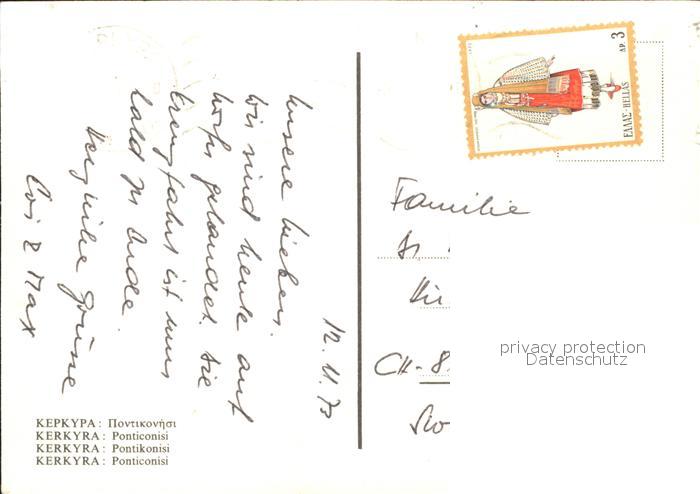 12.11.73
Unsere Lieben,
Wir sind heute auf
Korfu gelandet. Die
Kreuzfahrt ist nun
bald zu Ende.
Herzliche Grüsse
& Max
Familie
CH-8
ΔΡ. 3
ΕΛΛΑΣ-HELLAS
privacy protection
Datenschutz
ΚΕΡΚΥΡΑ: Ποντικονήσι
KERKYRA: Ponticonisi
KERKYRA: Pontikonisi
KERKYRA: Ponticonisi